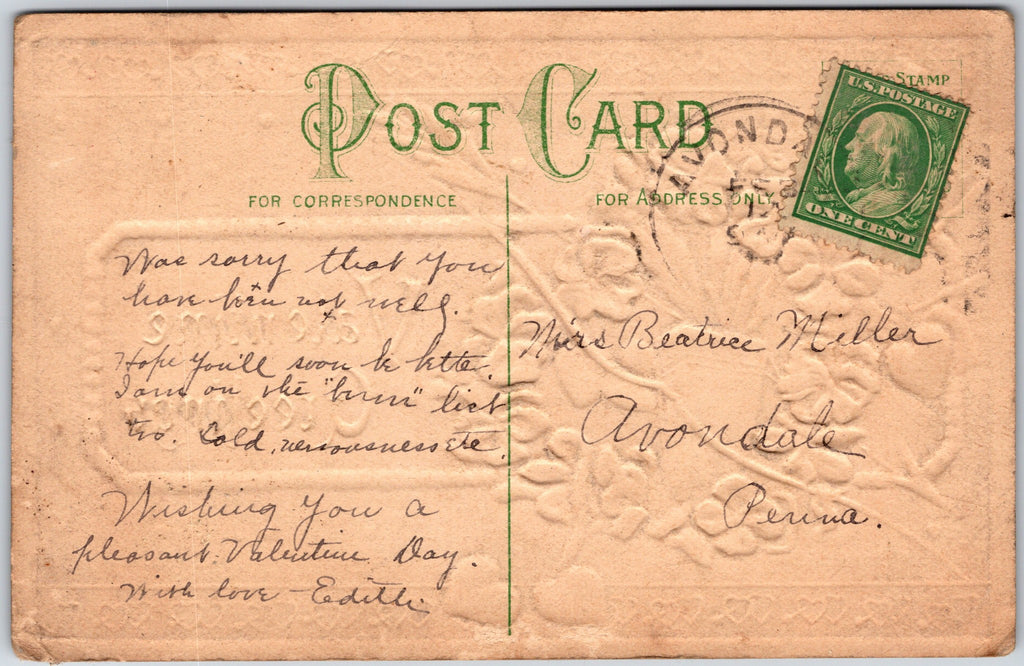 POST CARD
STAMP
FOR CORRESPONDENCE
FOR ADDRESS ONLY
AVONDA
U.S. POSTAGE
ONE CENT
Was sorry that you
have been not well.
Hope you'll soon be better.
I am on the "bum" list
too. Cold, nervousness etc.
Wishing you a
pleasant Valentine Day.
With love - Edith
Mrs Beatrice Miller
Avondale
Penna.